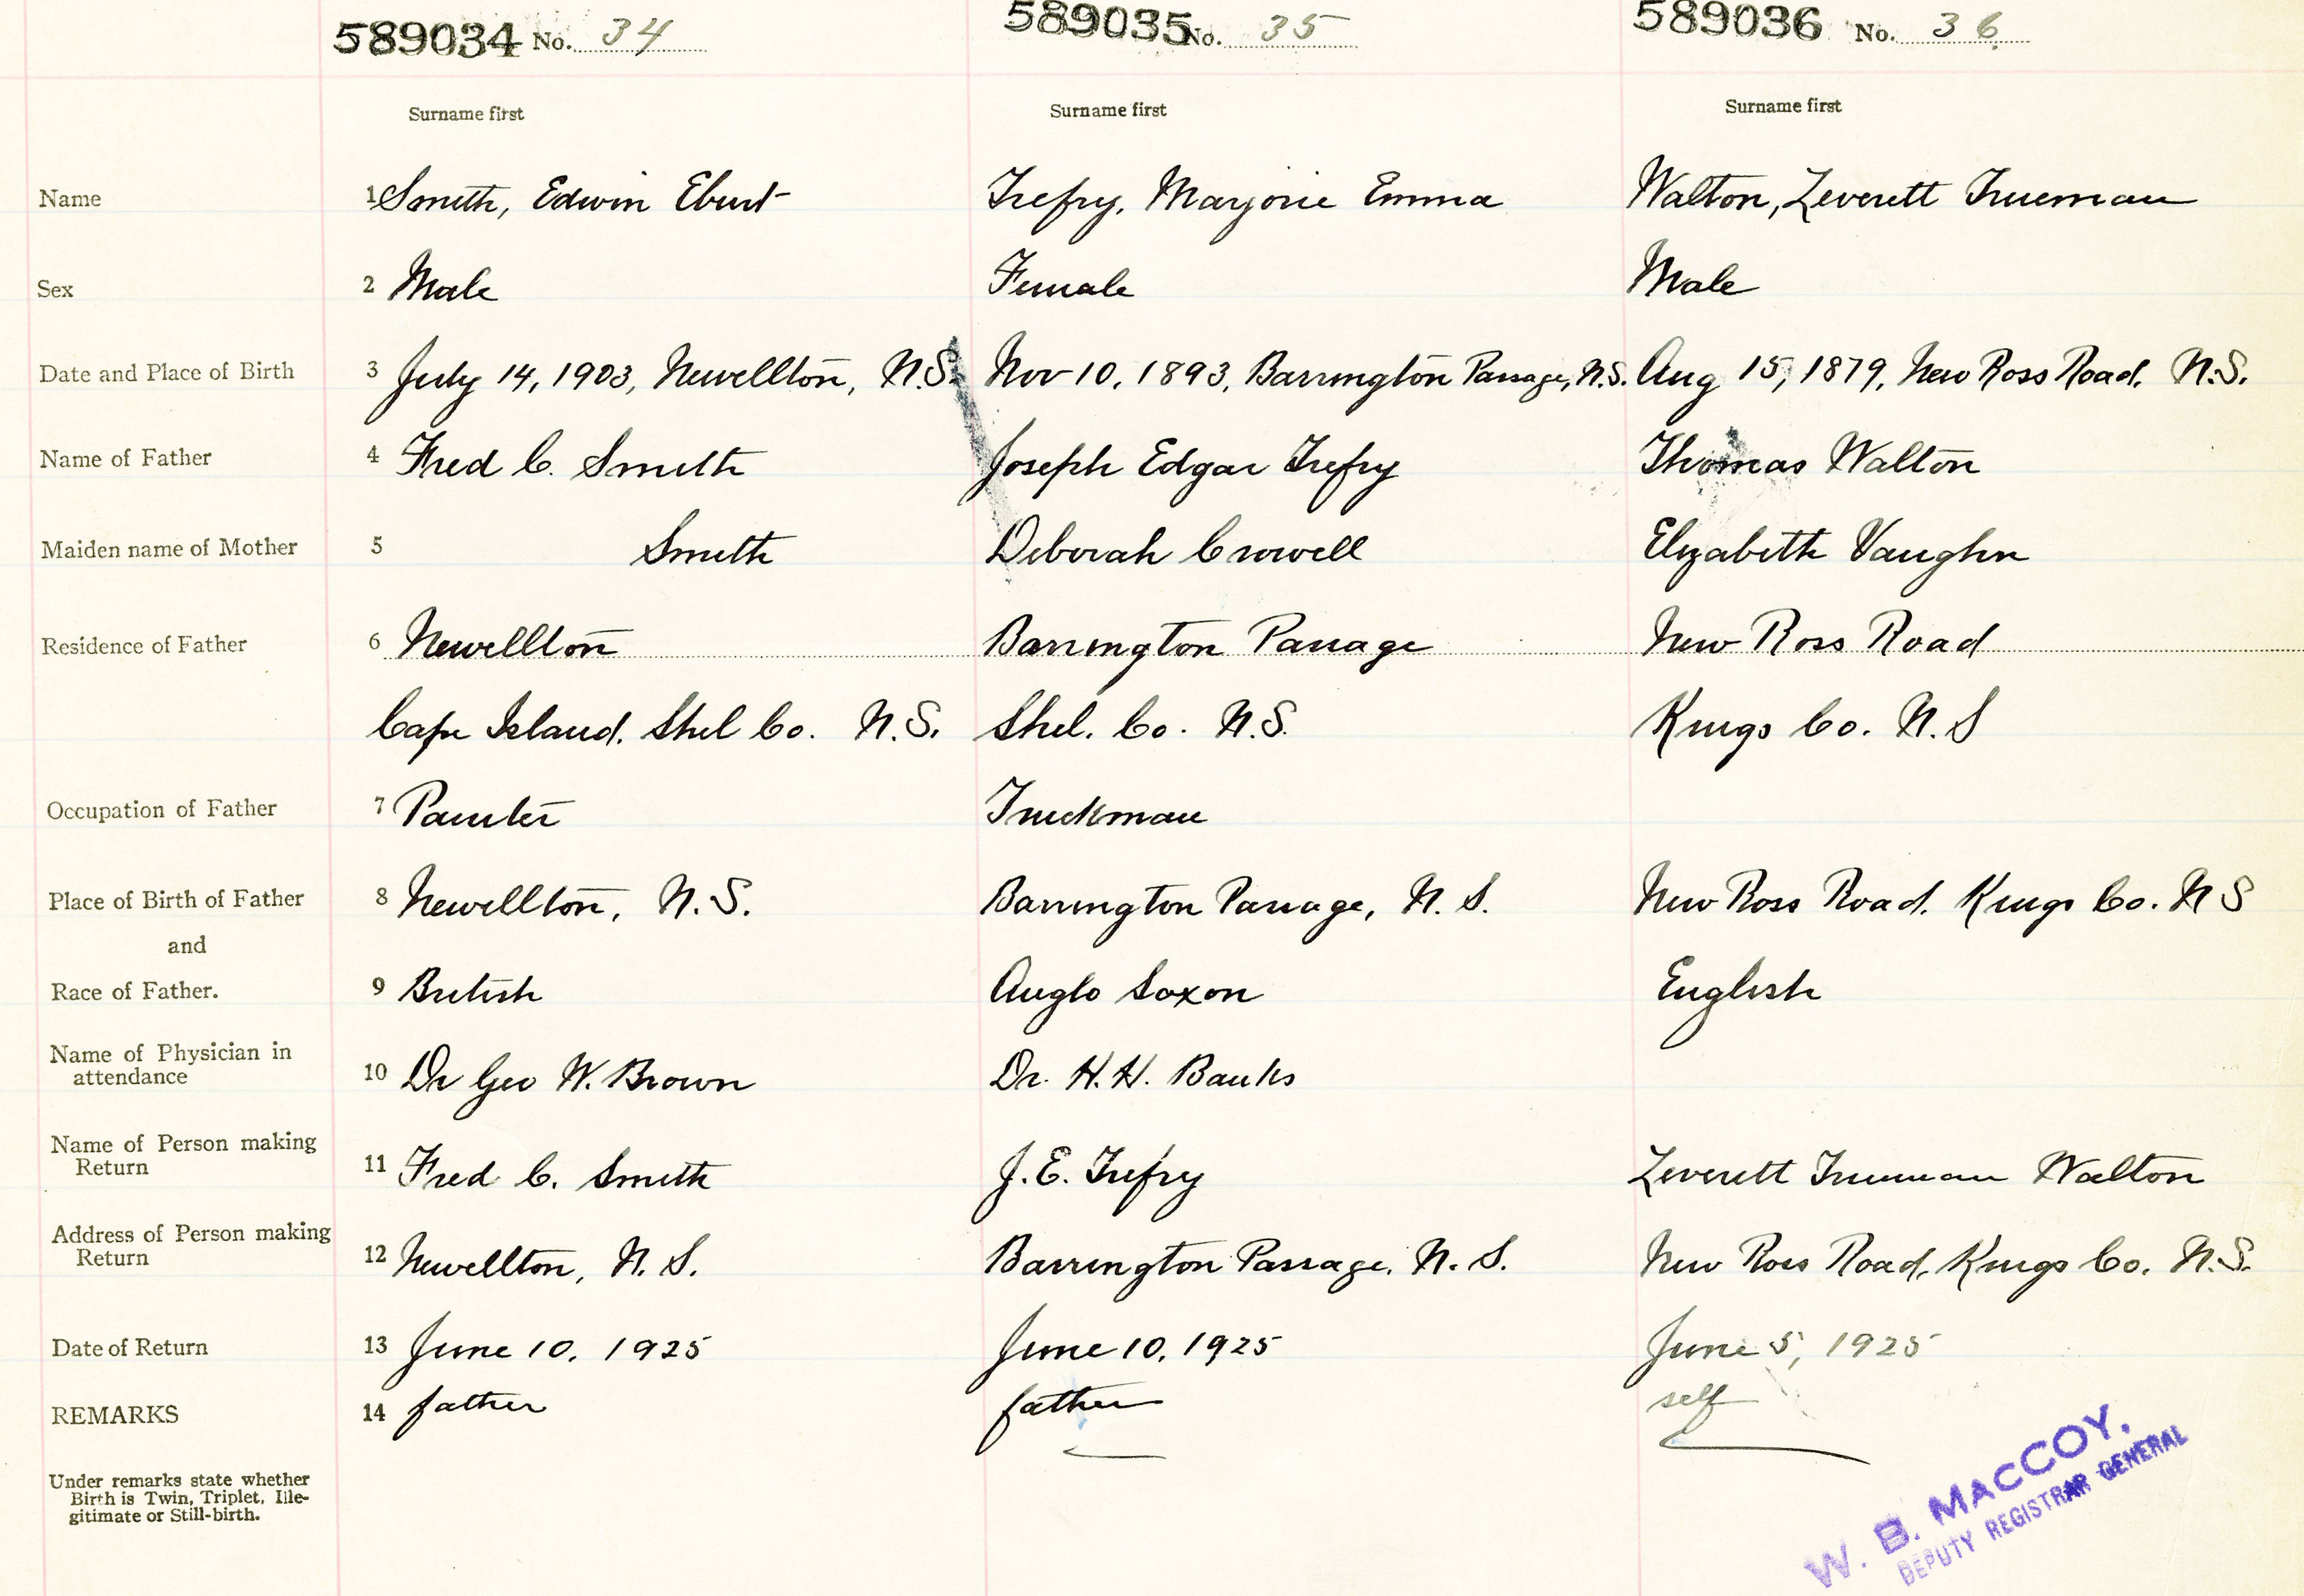 589034 No. 34 589035 No. 35 589036 No. 36
Surname first Surname first Surname first
Name 1 Smith, Edwin Trefry, Marjorie Emma Walton, Leverett Trueman
Sex 2 Male Female Male
Date and Place of Birth 3 July 14, 1903, Newellton, N.S. Nov 10, 1893, Barrington Passage, N.S. Aug 15, 1879, New Ross Road, N.S.
Name of Father 4 Fred C. Smith Joseph Edgar Trefry Thomas Walton
Maiden name of Mother 5 Smith Deborah Crowell Elizabeth Vaughn
Residence of Father 6 Newellton Barrington Passage New Ross Road
Cape Island, Shel Co. N.S. Shel. Co. N.S. Kings Co. N.S
Occupation of Father 7 Painter Truckman
Place of Birth of Father 8 Newellton, N.S. Barrington Passage, N.S. New Ross Road, Kings Co. N S
and
Race of Father. 9 British Anglo Saxon English
Name of Physician in
attendance 10 Dr Geo W. Brown Dr. H.H. Banks
Name of Person making
Return 11 Fred C. Smith J.E. Trefry Leverett Trueman Walton
Address of Person making
Return 12 Newellton, N.S. Barrington Passage, N.S. New Ross Road, Kings Co. N.S.
Date of Return 13 June 10, 1925 June 10, 1925 June 5, 1925
REMARKS 14 father father self
Under remarks state whether
Birth is Twin, Triplet, Ille-
gitimate or Still-birth.
W. B. MACCOY.
DEPUTY REGISTRAR GENERAL